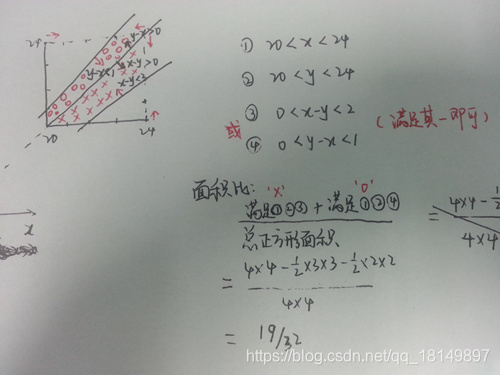 24
y-x>0
y-x<1
x-y>0
x-y<2
20
24
① 20<x<24
② 20<y<24
③ 0<x-y<2
或
④ 0<y-x<1
(满足其一即可)
面积比:
'x' 'O'
满足①②③+满足①②④
总正方形面积
= 4×4-½×3×3-½×2×2
4×4
= 19/32
= 4×4-½
4×4
x
https://blog.csdn.net/qq_18149897